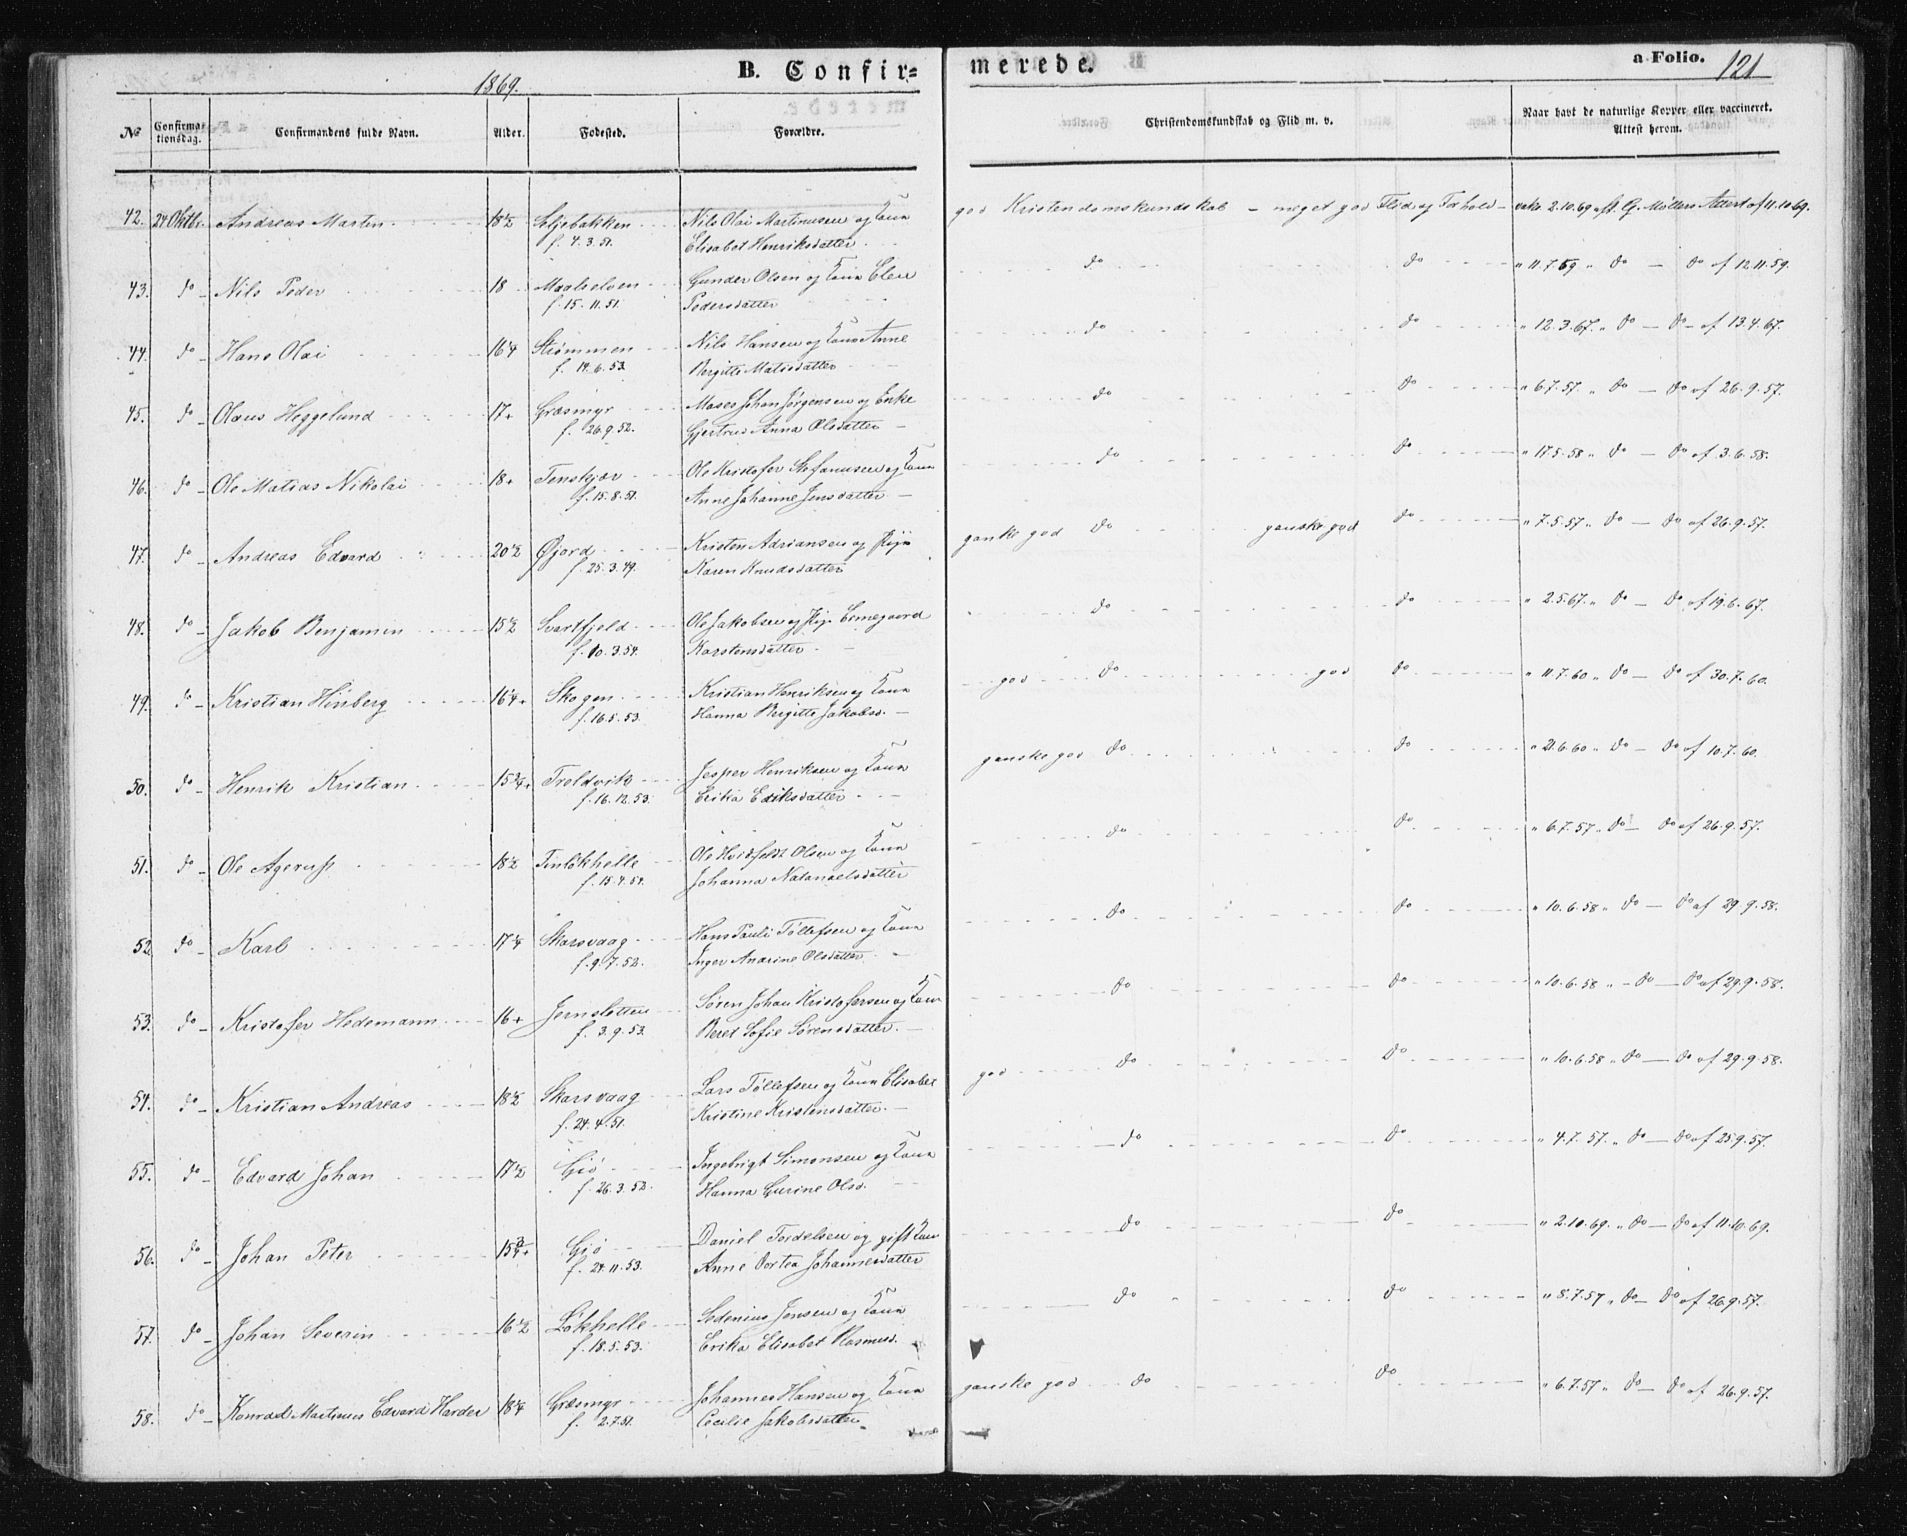 1869.
B. Confirmerede.
a Folio. 121
No
Confirmationsdag.
Confirmandens fulde Navn.
Alder.
Fødested.
Forældre.
Christendomskundskab og Flid m. v.
Naar havt de naturlige Kopper eller vaccineret. Attest herom.
42. 24 Oktbr. Andreas Martin 18½ Nils Olai Martinusen og Kona god Kristendomskundskab - meget god Flid og Forhold - vakc. 2.10.69 G. Møllers Attest af 11.10.69.
f. 4.3.51. Elisabet Henriksdatter
43. do Nils Peder 18 Maalselven Gunder Olsen og Kona Elen do do " 11.7.59 " do - do af 12.11.59.
f. 15.11.51. Pedersdatter
44. do Hans Olai 16¼ Strømmen Nils Hansen og Kona Anne do do " 12.3.67. " do - do af 13.4.67.
f. 14.6.53. Birgitte Matisdatter
45. do Olaus Heggelund 17+ Græsmyr Moses Johan Jørgensen og Enke do do " 6.7.57. " do - do af 26.9.57.
f. 26.9.52. Gjertrud Anna Olsdatter
46. do Ole Matias Nikolai 18+ Tenskjær Ole Kristofer Stefanusen og Kona do do " 17.5.58 " do - do af 3.6.58.
f. 15.8.51. Anne Johanne Jensdatter
47. do Andreas Edvard 20½ Øjord Kristen Adriansen og Pige ganske god do ganske god do " 7.5.57 " do - do af 26.9.57.
f. 25.3.49. Karen Knudsdatter
48. do Jakob Benjamin 15½ Svartfjeld Ole Jakobsen og Pige Ermegaard do do " 2.5.67. " do - do af 19.6.67.
f. 10.3.54. Karstensdatter
49. do Kristian Hinberg 16¼+ Skogen Kristian Henriksen og Kona god do god do " 11.7.60 " do - do af 30.7.60.
f. 16.5.53. Hanna Birgitte Jakobsd.
50. do Henrik Kristian 15¾+ Troldvik Jesper Henriksen og Kona ganske god do do " 21.6.60 " do - do af 10.7.60.
f. 16.12.53. Erika Eriksdatter
51. do Ole Agerup 18½ Finløkhelle Ole Hvidfeldt Olsen og Kona do do " 6.7.57 " do - do af 26.9.57.
f. 15.4.51. Johanna Natanaelsdatter
52. do Karl 17¼ Skarsvaag Hans Pauli Tollefsen og Kona do do " 10.6.58 " do - do af 29.9.58.
f. 9.7.52. Inger Anarine Olsdatter
53. do Kristofer Hedemann 16+ Jernsletten Søren Johan Kristofersen og Kona do do " 10.6.58 " do - do af 29.9.58.
f. 3.9.53. Beret Sofie Sørensdatter.
54. do Kristian Andreas 18½ Skarsvaag Lars Tollefsen og Kona Elisabet god do do " 10.6.58 " do - do af 29.9.58.
f. 24.4.51. Kristine Kristensdatter.
55. do Edvard Johan 17½ Giø Ingebrigt Simonsen og Kona do do " 4.7.57. " do - do af 25.9.57.
f. 26.3.52. Hanna Gurine Olsd.
56. do Johan Peter 15¾+ Giø Daniel Tordelsen og gift Kone do do " 2.10.69. " do - do af 11.10.69.
f. 24.11.53. Anne Dortea Johannesdatter
57. do Johan Severin 16½ Løkhelle Sedenius Jensen og Kona do do " 8.7.57 " do - do af 26.9.57.
f. 18.5.53. Erika Elisabet Rasmusd.
58. do Konrad Martinus Edvard Harder 18¼ Græsmyr Johannes Hansen og Kona ganske god do do " 6.7.57 " do - do af 26.9.57.
f. 2.7.51. Cecilie Jakobsdatter